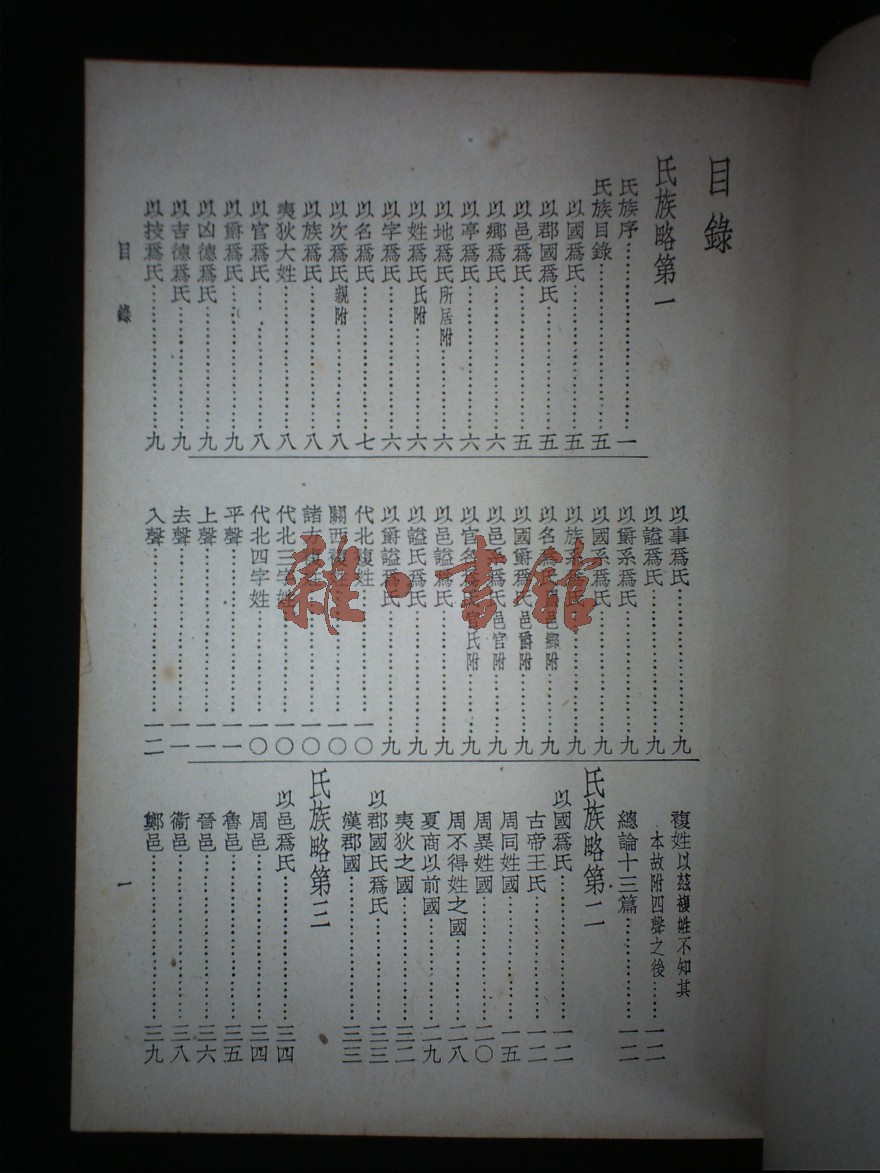 目錄
氏族略第一
氏族序……一
氏族目錄……五
以國爲氏……五
以郡國爲氏……五
以邑爲氏……五
以鄉爲氏……六
以亭爲氏……六
以地爲氏所居附……六
以姓爲氏氏附……六
以字爲氏……六
以名爲氏……七
以次爲氏親附……八
以族爲氏……八
夷狄大姓……八
以官爲氏……八
以爵爲氏……九
以凶德爲氏……九
以吉德爲氏……九
以技爲氏……九
以事爲氏……九
以謚爲氏……九
以爵系爲氏……九
以國系爲氏……九
以族系爲氏……九
以名爲氏邑鄉附……九
以國爵爲氏邑爵附……九
以邑系爲氏邑官附……九
以官名爲氏官氏附……九
以邑謚爲氏……九
以謚氏爲氏……九
以爵謚爲氏……九
代北複姓……一〇
關西複姓……一〇
諸方複姓……一〇
代北三字姓……一〇
代北四字姓……一〇
平聲……一一
上聲……一一
去聲……一一
入聲……一二
複姓以茲複姓不知其
本故附四聲之後……一二
總論十三篇……一二
氏族略第二
以國爲氏……一二
古帝王氏……一二
周同姓國……一五
周異姓國……二〇
周不得姓之國……二八
夏商以前國……二九
夷狄之國……三二
以郡國氏爲氏……三三
漢郡國……三三
氏族略第三
以邑爲氏……三四
周邑……三四
魯邑……三五
晉邑……三六
衞邑……三八
鄭邑……三九
目錄
一
雜·書館